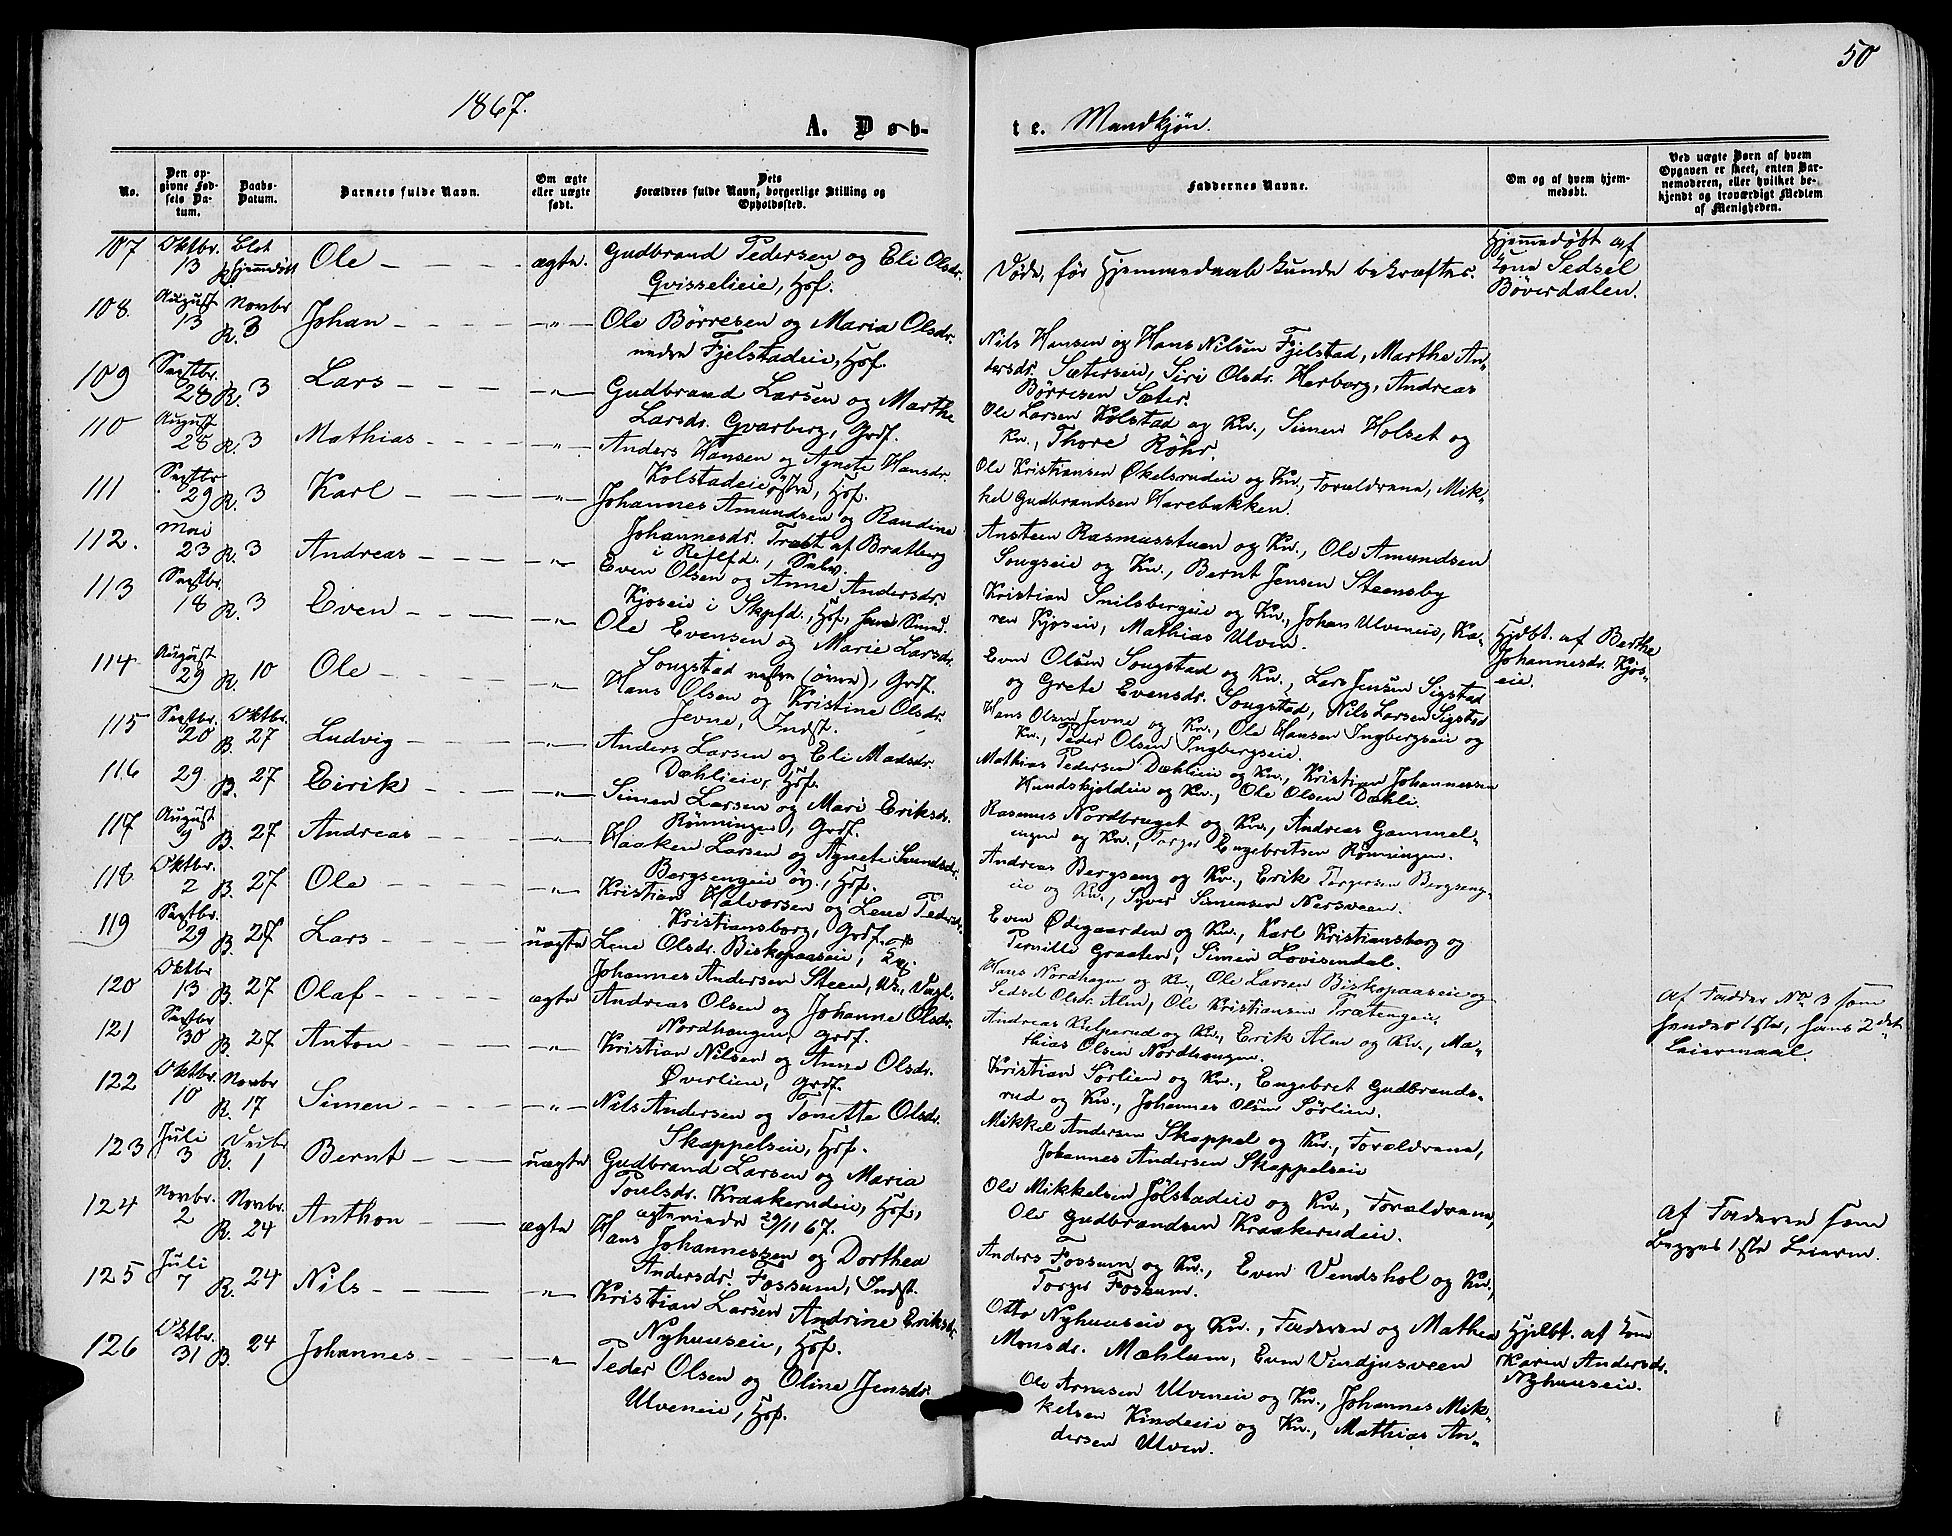 50
1867.
A. Døb-
te. Mandkjøn.
No.
Den op-
givne Fød-
sels Da-
tum.
Daabs-
Datum.
Barnets fulde Navn.
Om ægte
eller uægte
født.
Dets
Forældres fulde Navn, borgerlige Stilling og
Opholdssted.
Faddernes Navne.
Om og af hvem hjem-
medøbt.
Ved uægte Børn af hvem
Opgaven er skeet, enten Bar-
nemoderen, eller hvilket be-
kjendt og troværdigt Medlem
af Menigheden.
107 Oktbr. 13 Blot Hjemmedøbt Ole ægte.
Gudbrand Pedersen og Eli Olsdr.
Gvisselieie, Hsf.
Døde, før Hjemmedaab kunde bekræftes.
Hjemmedøbt af
Kone Sedsel
Böverdalen.
108. August 13 Novbr R. 3 Johan
Ole Börresen og Maria Olsdr.
nedre Fjelstadeie, Hsf.
Nils Hansen og Hans Nilsen Fjelstad, Marthe An-
dersdr. Sæterseie, Siri Olsdr. Herborg, Andreas
Börresen Sæter.
109 Septbr. 28 R. 3 Lars
Gudbrand Larsen og Marthe
Larsdr. Gvarberg, Grdf.
Ole Larsen Kolstad og Kn., Simen Holset og
Kn., Thore Röhr.
110 August 25 R. 3 Mathias
Anders Hansen og Agnete Hansdr.
Kolstadeie østre, Hsf.
Ole Kristiansen Økelsrudeie og Kn., Forældrene, Mik-
kel Gudbrandsen Harebakken.
111 Septbr 29 R. 3 Karl
Johannes Amundsen og Randine
Johannesdr. Træt af Bratberg
i , Selv.
Ansteen Rasmusstuen og Kn., Ole Amundsen
Songseie og Kn., Bernt Jensen Steensby
112. Mai 23 R. 3 Andreas
Even Olsen og Anne Andersdr.
Kjoseie i Skpfd., Hsf,
Kristian Snilsbergeie og Kn., Johan Ulveneie, Ka-
ren Kjoseie, Mathias Ulven.
Hjdbt. af Berthe
Johannesdr. Kjos-
eie.
113 Septbr. 18 R. 3 Even
Ole Evensen og Marie Larsdr.
Songstad vestre (övre), Grdf.
Even Olsen Songstad og Kn., Lars Jensen Sigstad
og Grete Evensdr. Songstad, Nils Larsen Sigstad
114 August 29 R. 10 Ole
Hans Olsen og Kristine Olsdr.
Jevne, Indst.
Hans Olsen Jevne og Kn., Ole Hansen Ingbergseie og
Kn., Peder Olsen Ingbergseie.
115 Septbr. 20 Oktbr. B. 27 Ludvig
Anders Larsen og Eli Madsdr.
Dæhlieie, Hsf.
Mathias Pedersen Dæhlieie og Kn., Kristian Johannessen
Hundskjoldeie og Kn., Ole Olsen Dæhli.
116 29 B. 27 Eirik
Simen Larsen og Mari Eriksdr.
Rönningen, Grdf.
Rasmus Nordbruget og Kn., Andreas Gammel-
ingen og Kn., Torger Engebretsen Rönningen.
117 August 9 B. 27 Andreas
Haaken Larsen og Agnete Svendsdr.
Bergsengeie öv., Hsf.
Andreas Bergseng og Kn., Erik Torgersen Bergseng-
eie og Kn., Syver Simensen Nersveen.
118 Oktbr. 2 B. 27 Ole
Kristian Halvorsen og Lene Pedersdr.
Kristiansborg, Grdf.
Even Ødegaarden og Kn., Karl Kristiansborg og
Pernille Graaten, Simen Lovisendal.
119 Septbr. 29 B. 27 Lars uægte
Lene Olsdr. Biskopaaseie, og
Johannes Andersen Steen,
Hans Nordhagen og K., Ole Larsen Biskopaaseie og
Sedsel Olsdr. Alm, Ole Kristiansen Trætengeie.
Af Fadder No 3 som
hendes 1ste, hans 2det
Leiermaal.
120 Oktbr 13 B. 27 Olaf ægte
Andreas Olsen og Johanne Olsdr.
Nordhangen, Grdf.
Andreas Kulperud og Kn., Erik Alm og Kn., Ma-
thias Olsen Nordhangen.
121 Septbr 30 B. 27 Anton
Kristian Nilsen og Anne Olsdr.
Överlien, Grdf.
Kristian Sörlien og Kn., Engebret Gudbrands-
rud og Kn., Johannes Olsen Sörlien.
122 Oktbr. 10 Novbr R. 17 Simen
Nils Andersen og Tonette Olsdr.
Skappelseie, Hsf.
Mikkel Andersen Skappel og Kn., Forældrene,
Johannes Andersen Skappelseie
123 Juli 3 Decbr R. 1 Bernt uægte
Gudbrand Larsen og Maria
Poulsdr. Kraakerudeie, Hsf,
ægteviede 29/11 67.
Ole Mikkelsen Jölstadeie og Kn., Forældrene,
Ole Gudbrandsen Kraakerudeie.
Af Faderen som
Begges 1ste Leierm.
124 Novbr. 2 Novbr. R. 24 Anthon ægte
Hans Johannessen og Dorthea
Andersdr. Fossum, Indst.
Anders Fossum og Kn., Even Vendshol og Kn.,
Torger Fossum.
125 Juli 7 R. 24 Nils
Kristian Larsen Andrine Eriksdr.
Nyhuuseie, Hsf.
Otto Nyhuuseie og Kn., Faderen og Mathea
Monsdr. Mæhlum, Even Vindjusveen
Hjdbt. af Kone
Karen Andersdr.
Nyhuuseie.
126 Oktbr. 31 B. 24 Johannes
Peder Olsen og Oline Jensdr.
Ulveneie, Hsf.
Ole Arnesen Ulveneie og Kn., Johannes Mik-
kelsen Kindeeie og Kn., Mathias An-
dersen Ulven.